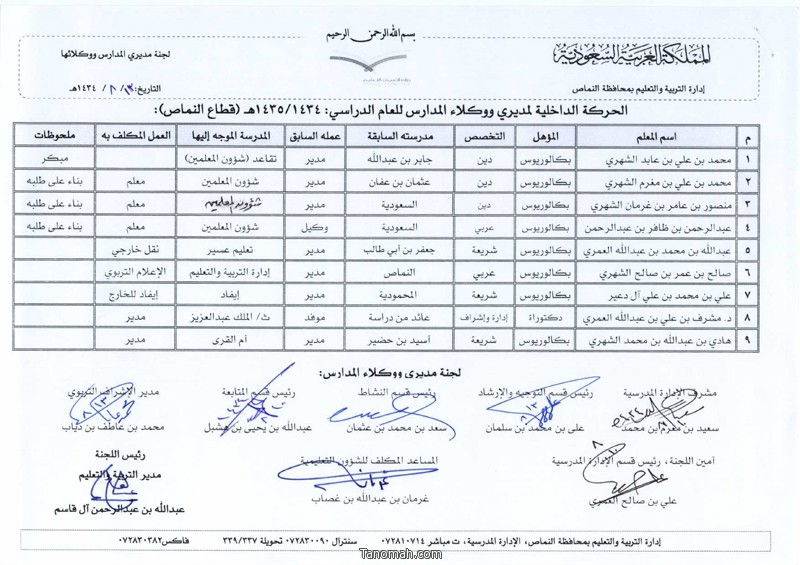 بسم الله الرحمن الرحيم
المملكة العربية السعودية
لجنة مديري المدارس ووكلائها
إدارة التربية والتعليم بمحافظة النماص
التاريخ: / / ١٤٣٤هـ
الحركة الداخلية لمديري ووكلاء المدارس للعام الدراسي: ١٤٣٥/١٤٣٤هـ (قطاع النماص):
م اسم المعلم المؤهل التخصص مدرسته السابقة عمله السابق المدرسة الموجه إليها العمل المكلف به ملحوظات
١ محمد بن علي بن عابد الشهري بكالوريوس دين جابر بن عبدالله مدير تقاعد (شؤون المعلمين) مبكر
٢ محمد بن علي بن مغرم الشهري بكالوريوس دين عثمان بن عفان مدير شئون المعلمين معلم بناء على طلبه
٣ منصور بن عامر بن غرمان الشهري بكالوريوس دين السعودية مدير شؤون المعلمين معلم بناء على طلبه
٤ عبدالرحمن بن ظافر بن عبدالرحمن بكالوريوس عربي السعودية وكيل شئون المعلمين معلم بناء على طلبه
٥ عبدالله بن محمد بن عبدالله العمري بكالوريوس شريعة جعفر بن أبي طالب مدير تعليم عسير نقل خارجي
٦ صالح بن عمر بن صالح الشهري بكالوريوس عربي النماص مدير إدارة التربية والتعليم الإعلام التربوي
٧ علي بن محمد بن علي آل دعير بكالوريوس شريعة المحمودية مدير إيفاد إيفاد للخارج
٨ د. مشرف بن علي بن عبدالله العمري دكتوراة إدارة وإشراف عائد من دراسة موفد ث/ الملك عبدالعزيز مدير
٩ هادي بن عبدالله بن محمد الشهري بكالوريوس شريعة أسيد بن حضير مدير أم القرى مدير
لجنة مديري ووكلاء المدارس:
مشرف الإدارة المدرسية رئيس قسم التوجيه والإرشاد رئيس قسم النشاط رئيس قسم المتابعة مدير الإشراف التربوي
سعيد بن مغرم بن محمد علي بن محمد بن سلمان سعد بن محمد بن عثمان عبدالله بن يحيى بن هشبل محمد بن عاطف بن دياب
أمين اللجنة، رئيس قسم الإدارة المدرسية المساعد المكلف للشؤون التعليمية رئيس اللجنة
مدير التربية والتعليم
علي بن صالح العمري غرمان بن عبدالله بن غصاب عبدالله بن عبدالرحمن آل قاسم
إدارة التربية والتعليم بمحافظة النماص، الإدارة المدرسية، ت مباشر ٠٧٢٨١٠٧١٤ سنترال ٠٧٢٨٣٠٠٩٠ تحويلة ٣٣٩/٣٣٧ فاكس٠٧٢٨٣٠٣٨٢
Tanomah.com